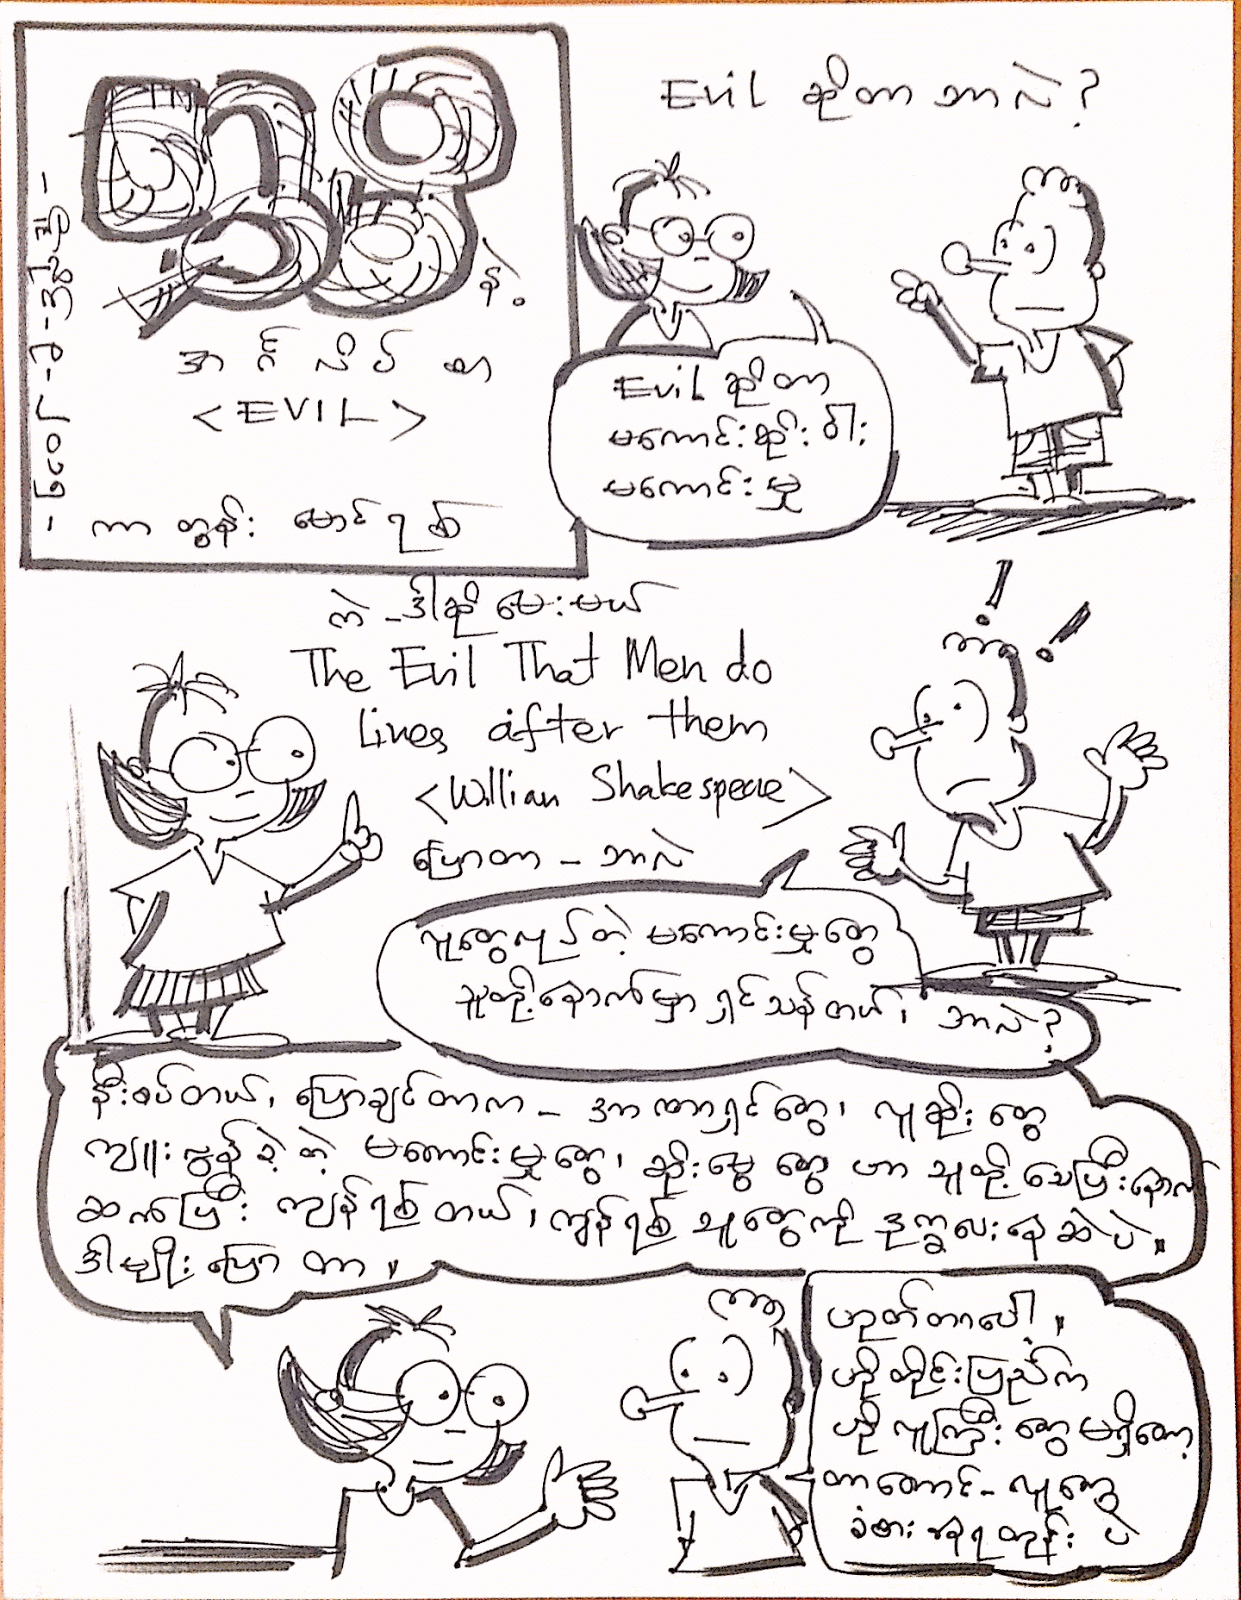 နဲ့
အင်္ဂလိပ်စာ
<EVIL>
ကာတွန်း မောင်ရစ်
Evil ဆိုတာ ဘာလဲ?
Evil ဆိုတာ
မကောင်းဆိုးဝါး
မကောင်းမှု
ကဲ - ဒါဆို မေးမယ်
The Evil That Men do
Lives after them
<Willian Shakespeare>
ပြောတာ - ဘာလဲ
လူတွေလုပ်တဲ့ မကောင်းမှုတွေ
သူတို့နောက်မှာ ရှင်သန်တယ်၊ ဘာလဲ?
နီးစပ်တယ်၊ ပြောချင်တာက - အာဏာရှင်တွေ၊ လူဆိုးတွေ
ကျူးလွန်ခဲ့တဲ့ မကောင်းမှုတွေ၊ ဆိုးမွေတွေ ဟာ သူတို့ သေပြီးနောက်
ဆက်ပြီး ကျန်ရစ်တယ်၊ ကျန်ရစ်သူတွေကို ဒုက္ခပေးနေဆဲပဲ။
ဒါမျိုး ပြောတာ။
ဟုတ်တာပေါ့။
ဟိုတိုင်းပြည်က
ဟိုလူကြီးတွေ မရှိတော့
တာတောင် - လူတွေ
ခံစားနေရတုန်းပဲ